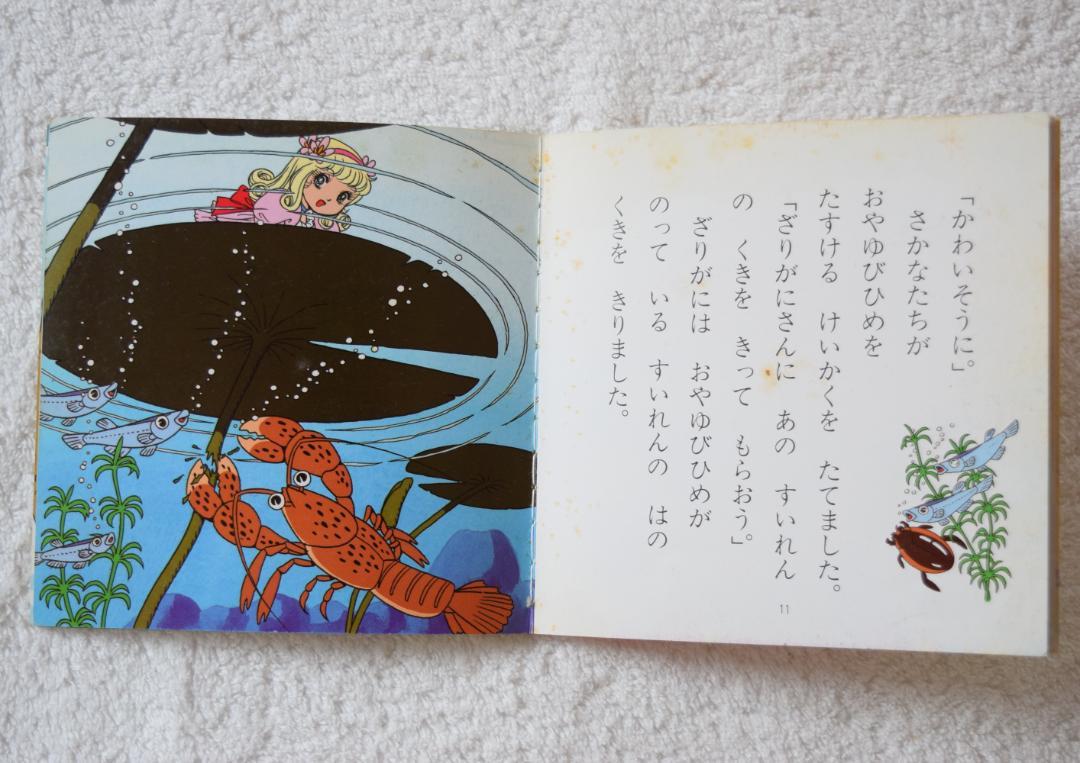 「かわいそうに。」
さかなたちが
おやゆびひめを
たすける けいかくを たてました。
「ざりがにさんに あの すいれん
の くきを きって もらおう。」
ざりがには おやゆびひめが
のって いる すいれんの はの
くきを きりました。
11